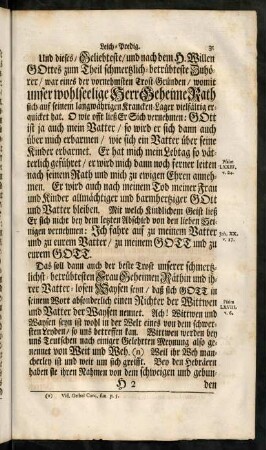 Leich-Predig.
Und dieses / Geliebteste / und nach dem H. Willen
GOttes zum Theil schmertzlich-betrübteste Zuhö-
rer / war eines der vornehmsten Trost-Gründen / womit
unser wohlseelige Herr Geheime Rath
sich auf seinem langwährigen Krancken Lager vielfältig er-
quicket hat. O wie offt ließ Er Sich vernehmen: GOtt
ist ja auch mein Vatter / so wird er sich dann auch
über mich erbarmen / wie sich ein Vatter über seine
Kinder erbarmet. Er hat mich mein Lebtag so vät-
terlich geführet / er wird mich dann noch ferner leiten
nach seinem Rath und mich zu ewigen Ehren anneh-
men. Er wird auch meinem Tod meiner Frau und
Kinder allmächtiger und barmhertziger GOtt
und Vatter bleiben. Mit welch kindlichem Geist ließ
Er sich nicht bey dem letzten Abschied von den lieben Sei-
nigen vernehmen: Ich fahre auf zu meinem Vatter
und zu eurem Vatter / zu meinem GOTT und zu
eurem GOTT.
Psalm
LXXIII.
v. 24.
Joh. XX.
v. 17.
Das soll dann auch der beste Trost unserer schmertz-
lichst-betrübtesten Frau Geheimen Räthin und ih-
rer Vatter-losen Waysen seyn / daß sich GOTT in
seinem Wort absonderlich einen Richter der Wittwen
und Vatter der Waysen nennet. Ach! Wittwen und
Waysen seyn ist wohl in der Welt eines von dem schwer-
sten Leyden / so uns betreffen kan. Wittwen werden bey
uns Teutschen nach einiger Gelehrten Meynung also ge-
nennet von Weit und Weh. (n) Weil ihr Weh man-
cherley ist und weit um sich greifft. Bey den Hebräern
haben sie ihren Nahmen von dem schweigen und gebun-
Psalm
LXVIII.
v. 6.
H 2
den
(n) Vid.